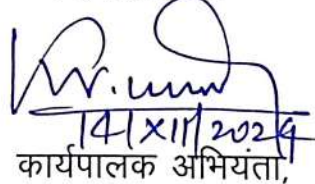 14/XII/2024
कार्यपालक अभियंता,